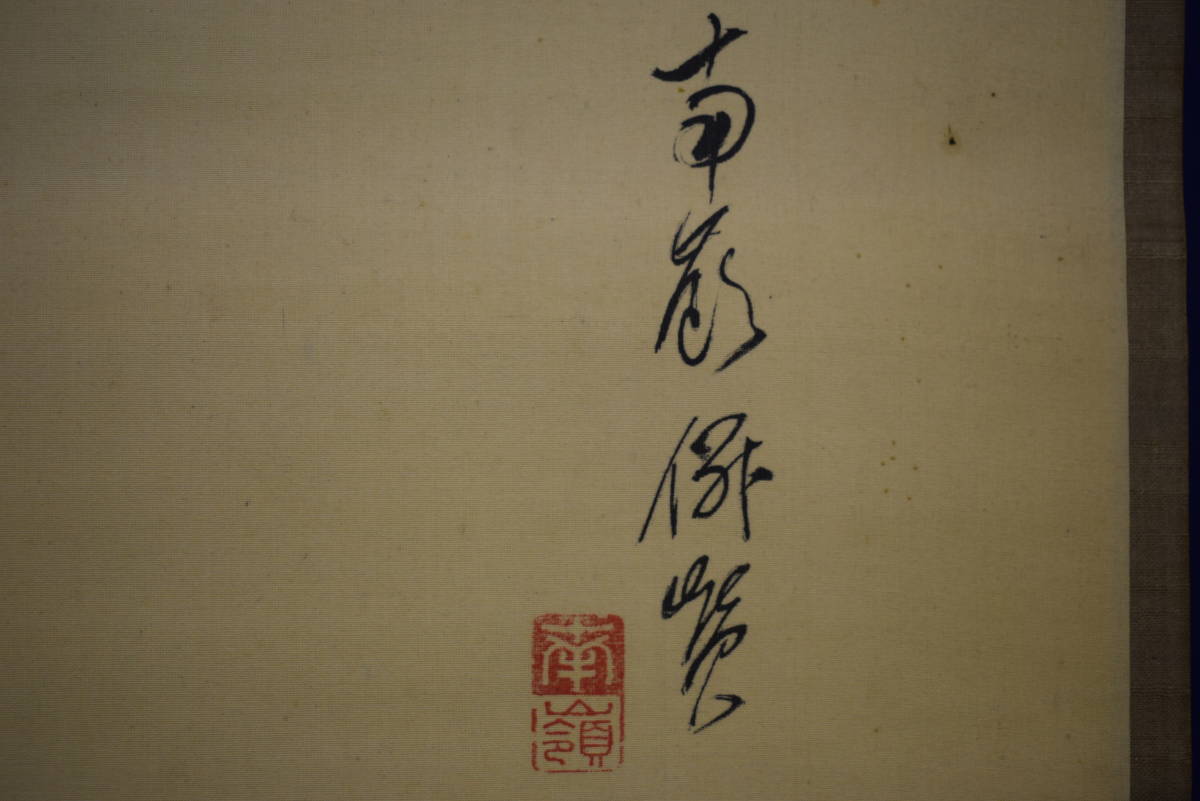 南嶺併賛
南嶺